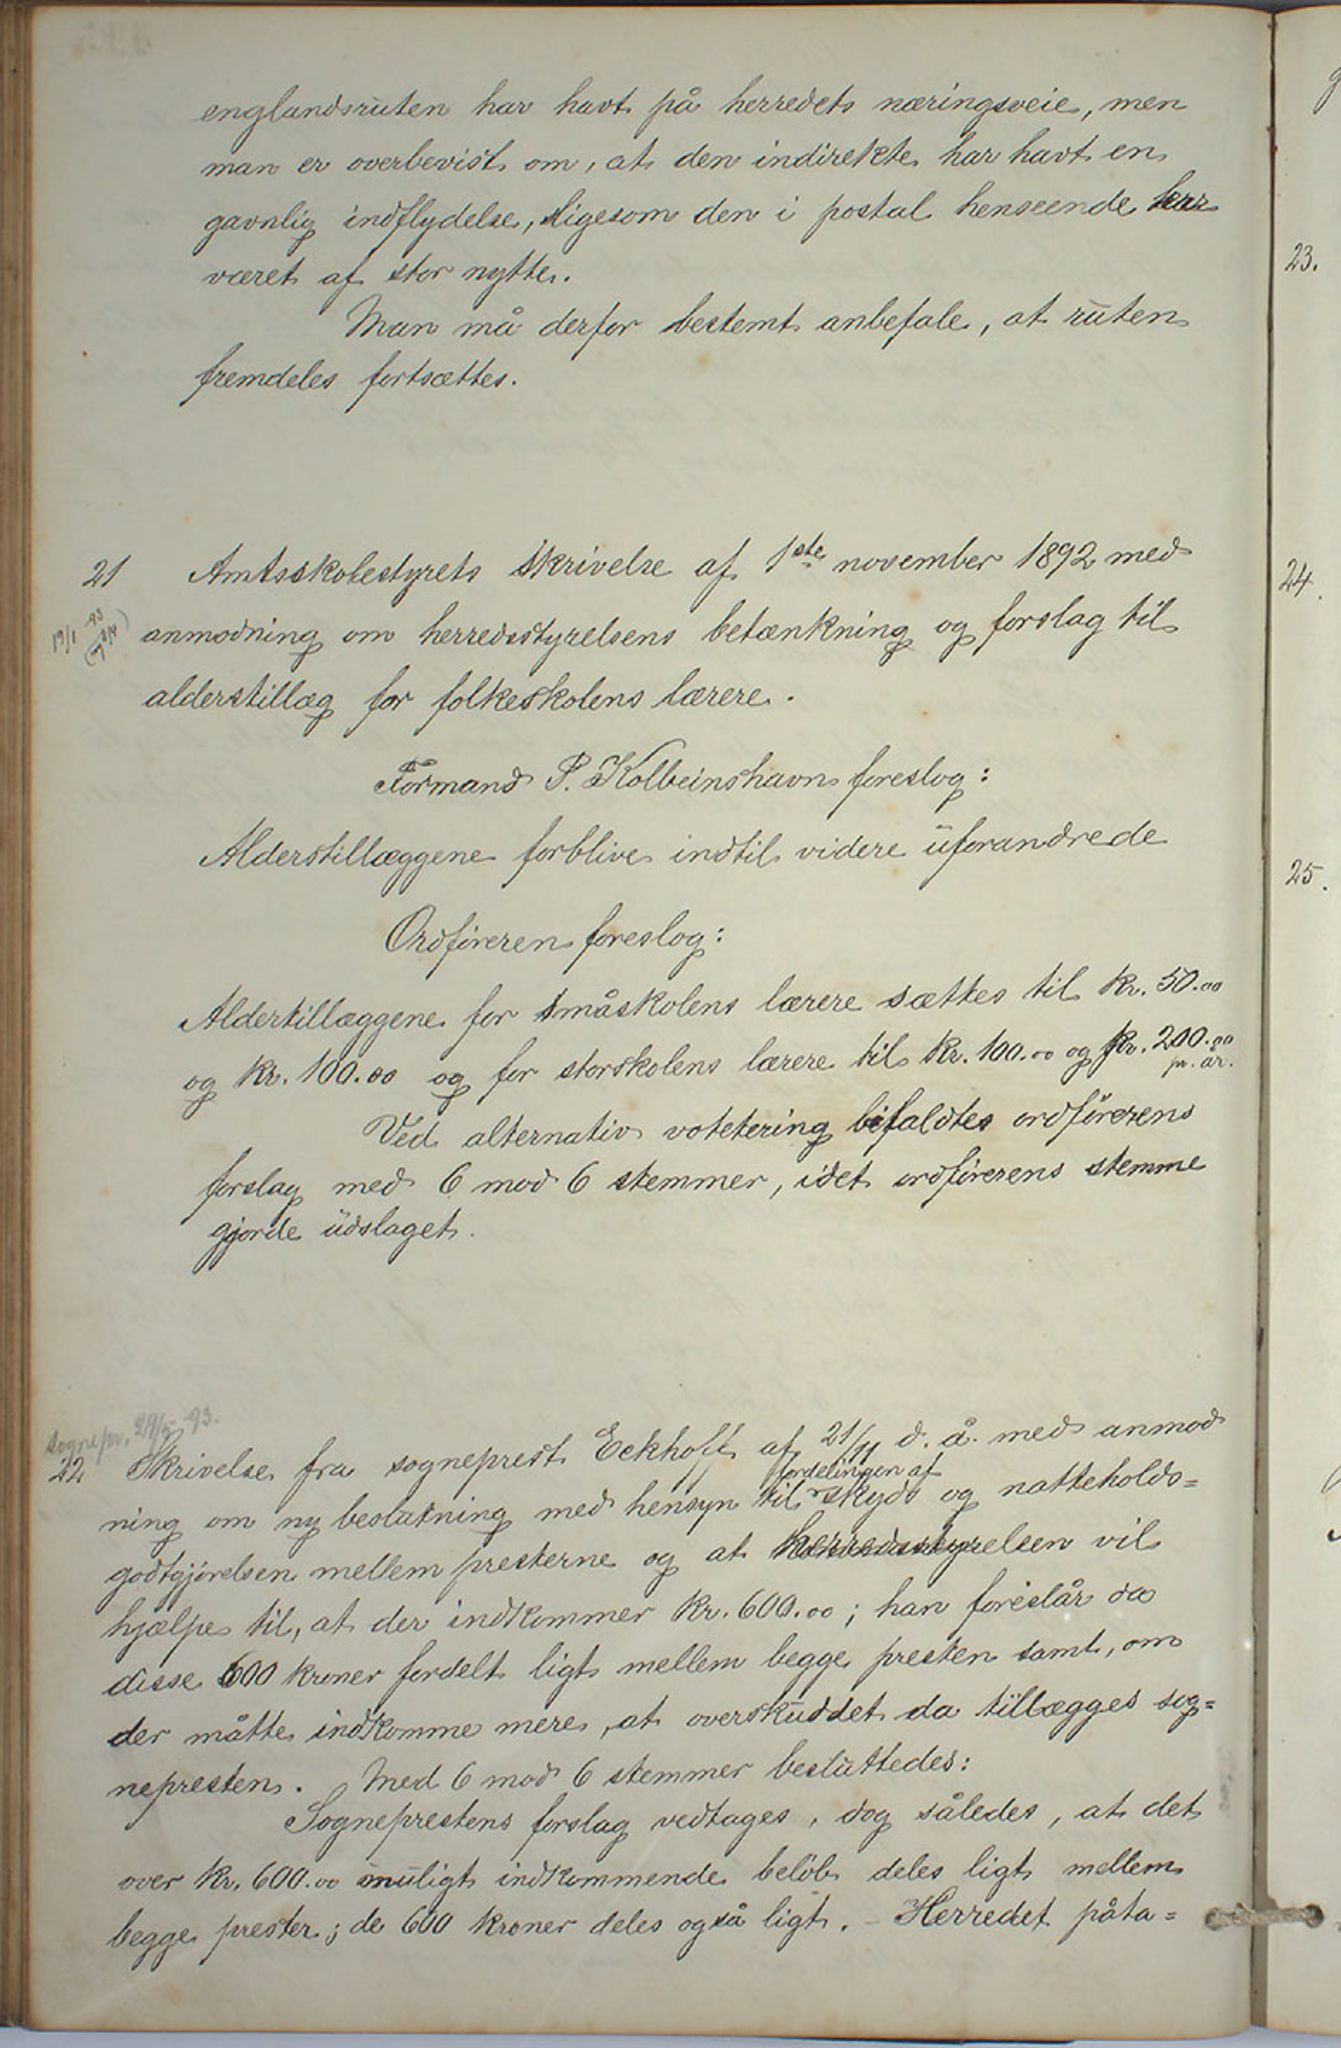 englandsruten har havt på herredets næringsveie, men
man er overbevist om, at den indirekte har havt en
gavnlig indflydelse, ligesom den i postal henseende har
været af stor nytte.
Man må derfor bestemt anbefale, at ruten
fremdeles fortsættes.
21 Amtsskolestyrets skrivelse af 1ste november 1892 med
19/1 -93
anmodning om herredsstyrelsens betænkning og forslag til
alderstillæg for folkeskolens lærere.
Formand P. Kolbeinshavn foreslog:
Alderstillæggene forblive indtil videre uforandrede
Ordføreren foreslog:
Aldertillæggene for småskolens lærere sættes til kr. 50.00
og kr. 100.00 og for storskolens lærere til kr. 100.00 og kr. 200.00
pr. år.
Ved alternativ votetering bifaldtes ordførerens
forslag med 6 mod 6 stemmer, idet ordførerens stemme
gjorde udslaget.
sognepr. 29/5 -93.
22 Skrivelse fra sogneprest Eckhoff af 21/11 d. å. med anmod
fordelingen af
ning om ny beslutning med hensyn til skyds og natteholds=
godtgjørelsen mellem presterne og at herredsstyrelsen vil
hjælpe til, at der indkommer kr. 600.00; han foreslår da
disse 600 kroner fordelt ligt mellem begge presten samt, om
der måtte indkomme mere, at overskuddet da tillægges sog=
nepresten. Med 6 mod 6 stemmer besluttedes:
Sogneprestens forslag vedtages, dog således, at det
over kr. 600.00 muligt indkommende beløb deles ligt mellem
begge prester; de 600 kroner deles også ligt. - Herredet påta=
23.
24.
25.